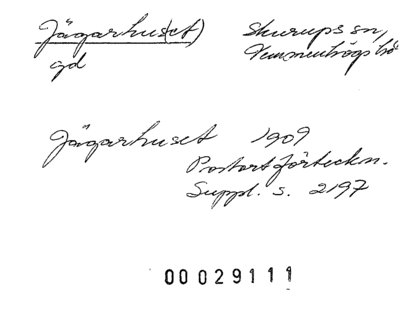 Jägarhus(et) Skurups sn,
gd Vemmenhögs hd
Jägarhuset 1909
Postortförteckn.
Suppl. s. 2197
00029111